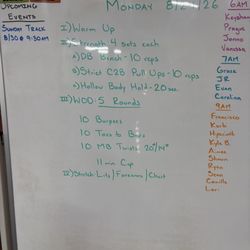 UPCOMING
EVENTS
SUNDAY TRACK
8/30 @ 9:30AM
MONDAY
I) Warm Up
II) Strength 4 sets each
A) DB Bench - 10 reps
B) Strict C2B Pull Ups - 10 reps
C) Hollow Body Hold - 20 sec
III) WOD: 5 Rounds
10 Burpees
10 Toes to Bars
10 MB Twists 20#/14#
11 min Cap
IV) Stretch: Lats / Forearms / Chest
6AM
Keyshan
Pragya
Jenna
Vanessa
7AM
Grace
JR
Evan
Carolina
9AM
Francisco
Karli
Hyacinth
Kyle B
Aimee
Shawn
Ryan
Sean
Camille
Lori